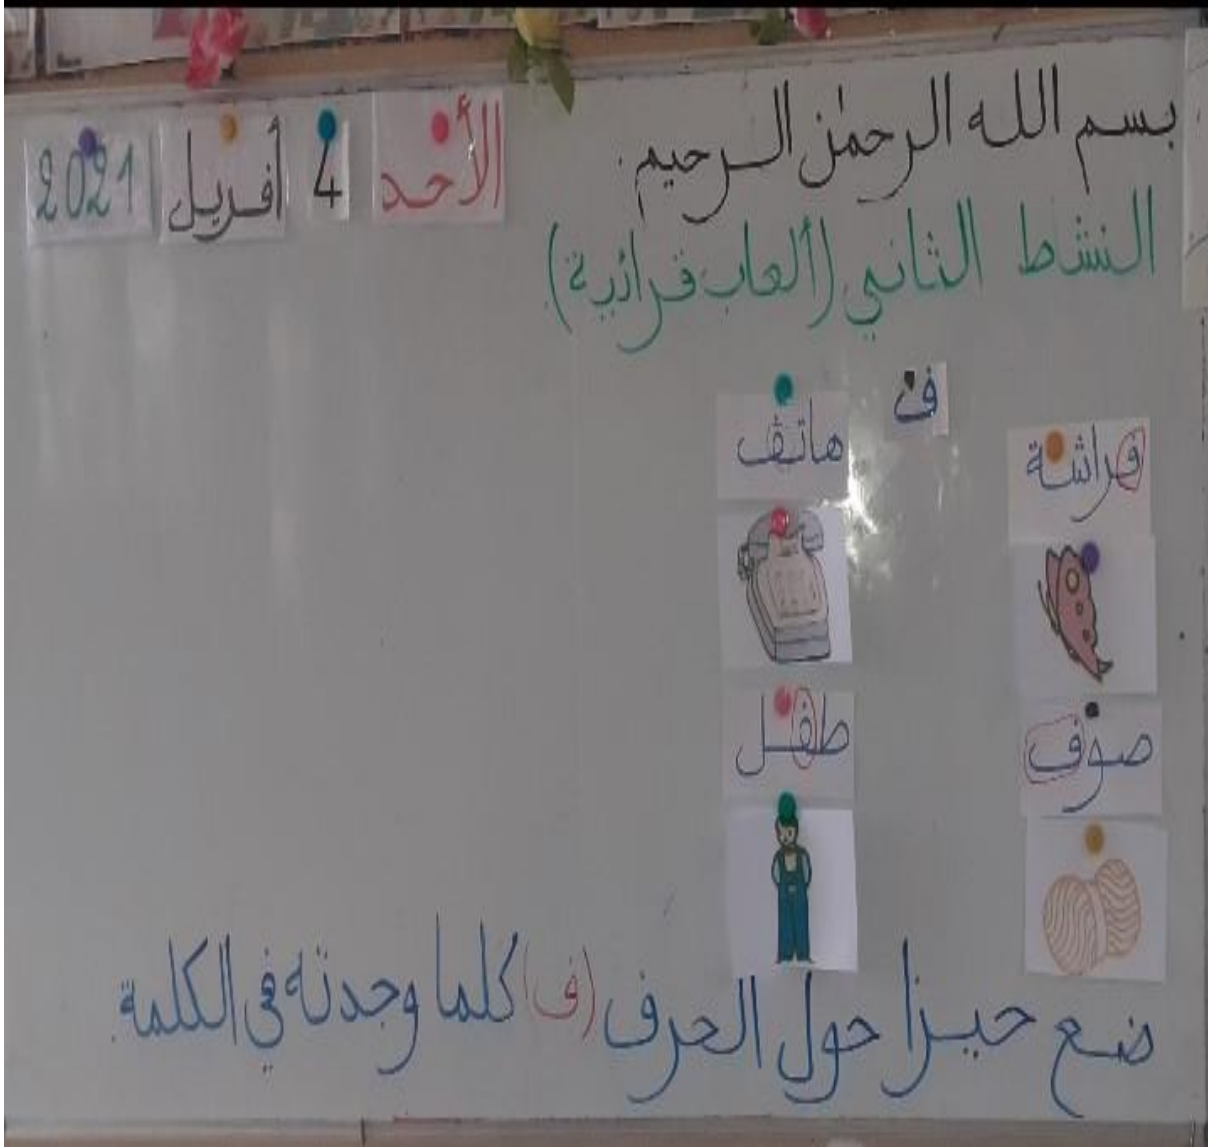 بسم الله الرحمٰن الرحيم.
الأحد 4 أفريل 2021
النشاط الثاني (ألعاب قرائية).
ف
فراشة
هاتف
صوف
طفل
ضع حيزا حول الحرف (ف) كلما وجدته في الكلمة.